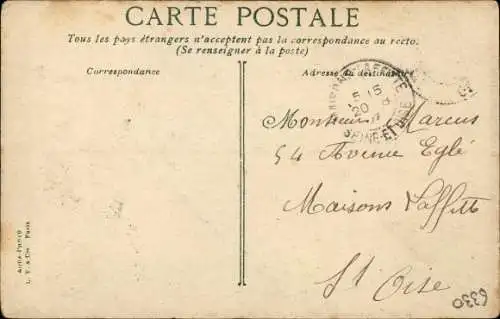 CARTE POSTALE
Tous les pays étrangers n'acceptent pas la correspondance au recto.
(Se renseigner à la poste)
Correspondance
Adresse du destinataire
MAISONS-LAFFITTE
5 15
20
SEINE-ET-OISE
Monsieur Marcus
54 Avenue Eglé
Maisons Laffitte
St Oise
Aqua-Photo
L. V. & Cie Paris
6330